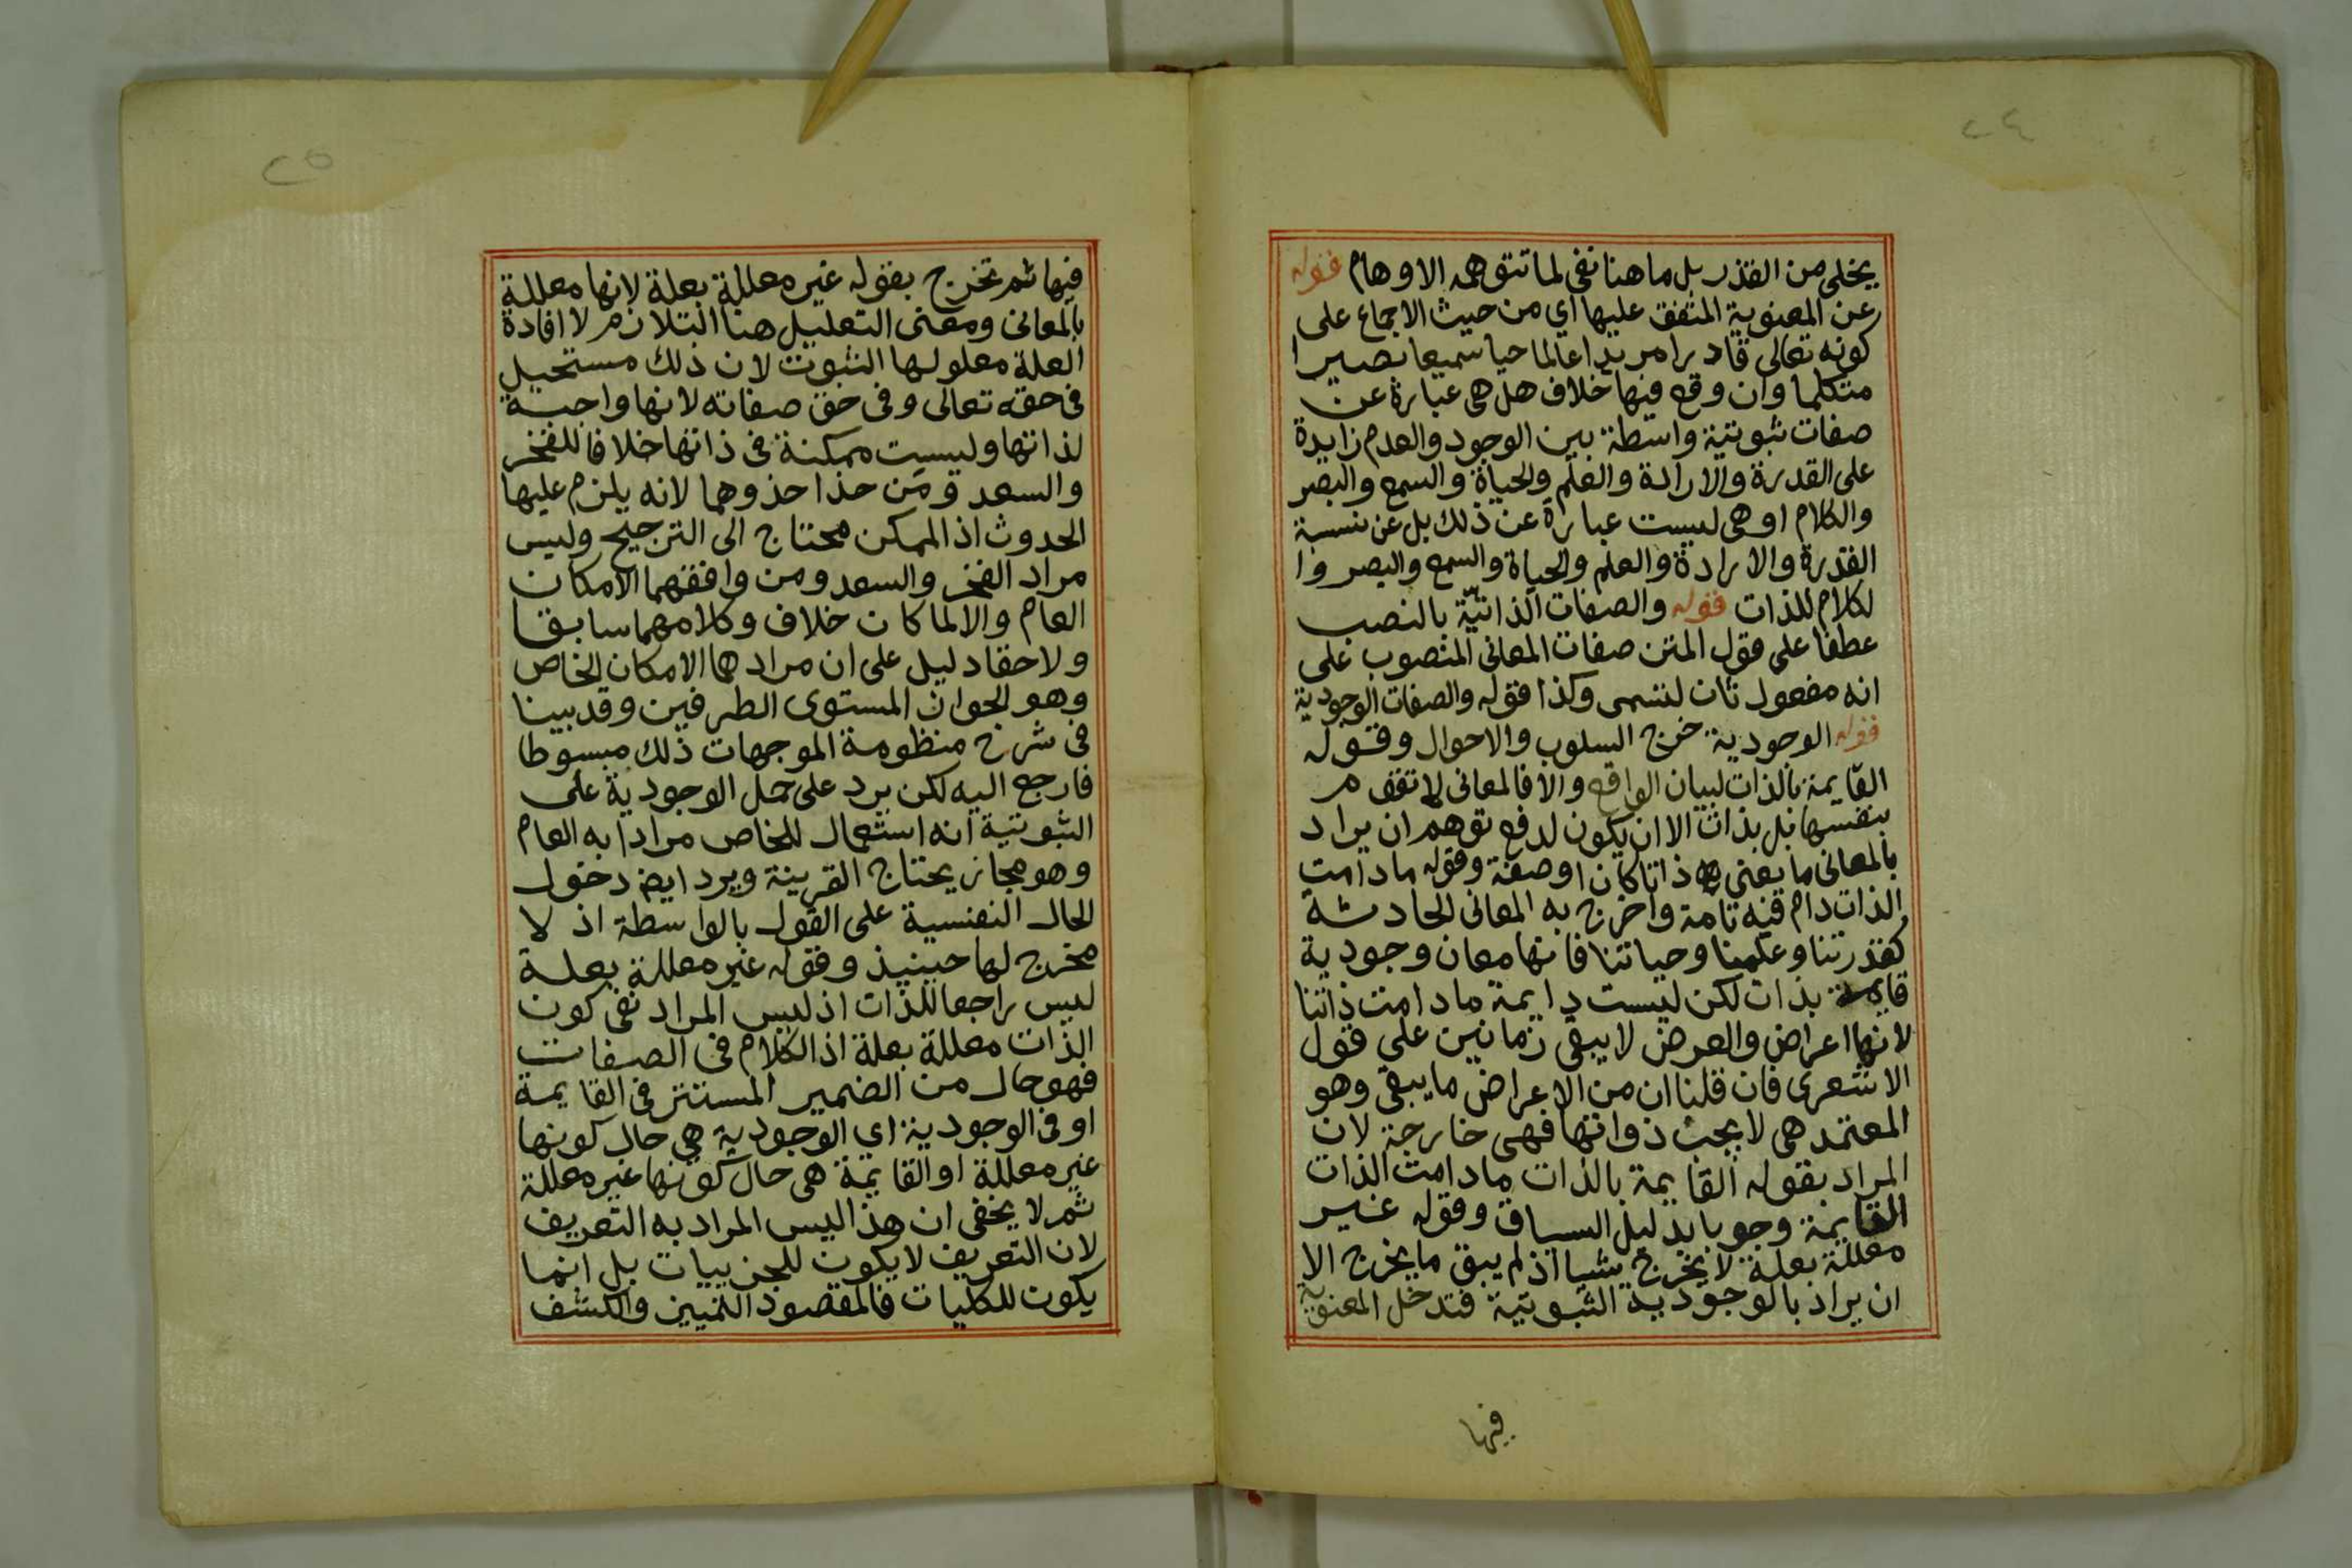 ٢٤
يخلى من القذر بل ما هنا نفى لما تتوهمه الاوهام قوله
عن المعنوية المتفق عليها اي من حيث الاجماع على
كونه تعالى قادرا مريدا عالما حيا سميعا بصيرا
متكلما وان وقع فيها خلاف هل هى عبارة عن
صفات ثبوتية واسطة بين الوجود والعدم زايدة
على القدرة والارادة والعلم والحياة والسمع والبصر
والكلام او هى ليست عبارة عن ذلك بل عن نسبة
القدرة والارادة والعلم والحياة والسمع والبصر وا
لكلام للذات قوله والصفات الذاتية بالنصب
عطفا على قول المتن صفات المعانى المنصوب على
انه مفعول ثان لتسمى وكذا قوله والصفات الوجودية
قوله الوجودية خرج السلوب والاحوال وقوله
القايمة بالذات لبيان الواقع والا فالمعانى لا تقوم
بنفسها بل بذات الا ان يكون لدفع توهم ان يراد
بالمعانى ما يعني ذاتا كان او صفة وقوله ما دامت
الذات دام فيه تامة واخرج به المعانى الحادثة
كقدرتنا وعلمنا وحياتنا فانها معان وجودية
قايمة بذات لكن ليست دايمة ما دامت ذاتنا
لانها اعراض والعرض لا يبقى زمانين على قول
الاشعرى فان قلنا ان من الاعراض ما يبقى وهو
المعتمد هى لا بجث ذواتها فهى خارجة لان
المراد بقوله القايمة بالذات ما دامت الذات
القايمة وجوبا بدليل السياق وقوله غير
معللة بعلة لا يخرج شيا اذ لم يبق ما يخرج الا
ان يراد بالوجودية الثبوتية فتدخل المعنوية
فيها
٢٥
فيها ثم تخرج بقوله غير معللة بعلة لانها معللة
بالمعانى ومعنى التعليل هنا التلازم لا افادة
العلة معلولها الثبوت لان ذلك مستحيل
فى حقه تعالى وفى حق صفاته لانها واجبة
لذاتها وليست ممكنة فى ذاتها خلافا للفخر
والسعد ومن حذا حذوهما لانه يلزم عليها
الحدوث اذ الممكن محتاج الى الترجيح وليس
مراد الفخر والسعد ومن وافقهما الامكان
العام والا لما كان خلاف وكلامهما سابقا
ولاحقا دليل على ان مرادهما الامكان الخاص
وهو الجواز المستوى الطرفين وقد بينا
فى شرح منظومة الموجهات ذلك مبسوطا
فارجع اليه لكن يرد على حمل الوجودية على
الثبوتية انه استعمال للخاص مرادا به العام
وهو مجاز يحتاج القرينة ويرد ايض دخول
الحال النفسية على القول بالواسطة اذ لا
مخرج لها حينيذ وقوله غير معللة بعلة
ليس راجعا للذات اذ ليس المراد نفى كون
الذات معللة بعلة اذ الكلام فى الصفات
فهو حال من الضمير المستتر فى القايمة
او فى الوجودية اي الوجودية هي حال كونها
غير معللة او القايمة هى حال كونها غير معللة
ثم لا يخفى ان هذا ليس المراد به التعريف
لان التعريف لا يكون للجزييات بل انما
يكون للكليات فالمقصود التميين والكشف